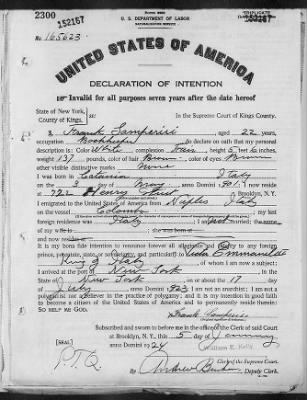 2300
U. S. DEPARTMENT OF LABOR
NATURALIZATION SERVICE
TRIPLICATE
152157
152157
No. 165623
UNITED STATES OF AMERICA
DECLARATION OF INTENTION
Invalid for all purposes seven years after the date hereof
State of New York,
County of Kings.
ss:
In the Supreme Court of Kings County.
I, Frank Samperisi, aged 22 years,
occupation Bookkeeper, do declare on oath that my personal
description is: Color White, complexion Fair, height 5 feet inches,
weight 137 pounds, color of hair Brown, color of eyes Brown
other visible distinctive marks None
I was born in Catania Italy
on the 3 day of May, anno Domini 901; I now reside
at 792 Henry Street, Brooklyn, N. Y.
I emigrated to the United States of America from Naples Italy
on the vessel Colombo; my last
foreign residence was Italy; I am not married; the name
of my wife is ; she was born in
and now resides at
It is my bona fide intention to renounce forever all allegiance and fidelity to any foreign
prince, potentate, state, or sovereignty, and particularly to Victor Emmanuel III
King of Italy, of whom I am now a subject;
I arrived at the port of New York, in the
State of New York, on or about the 17 day
of July, anno Domini 1923; I am not an anarchist; I am not a
polygamist nor a believer in the practice of polygamy; and it is my intention in good faith
to become a citizen of the United States of America and to permanently reside therein:
SO HELP ME GOD.
Frank Samperisi
Subscribed and sworn to before me in the office of the Clerk of said Court
at Brooklyn, N. Y., this 5 day of January
anno Domini 1924
William E. Kelly
[SEAL]
Clerk of the Supreme Court.
By Andrew Deputy Clerk.